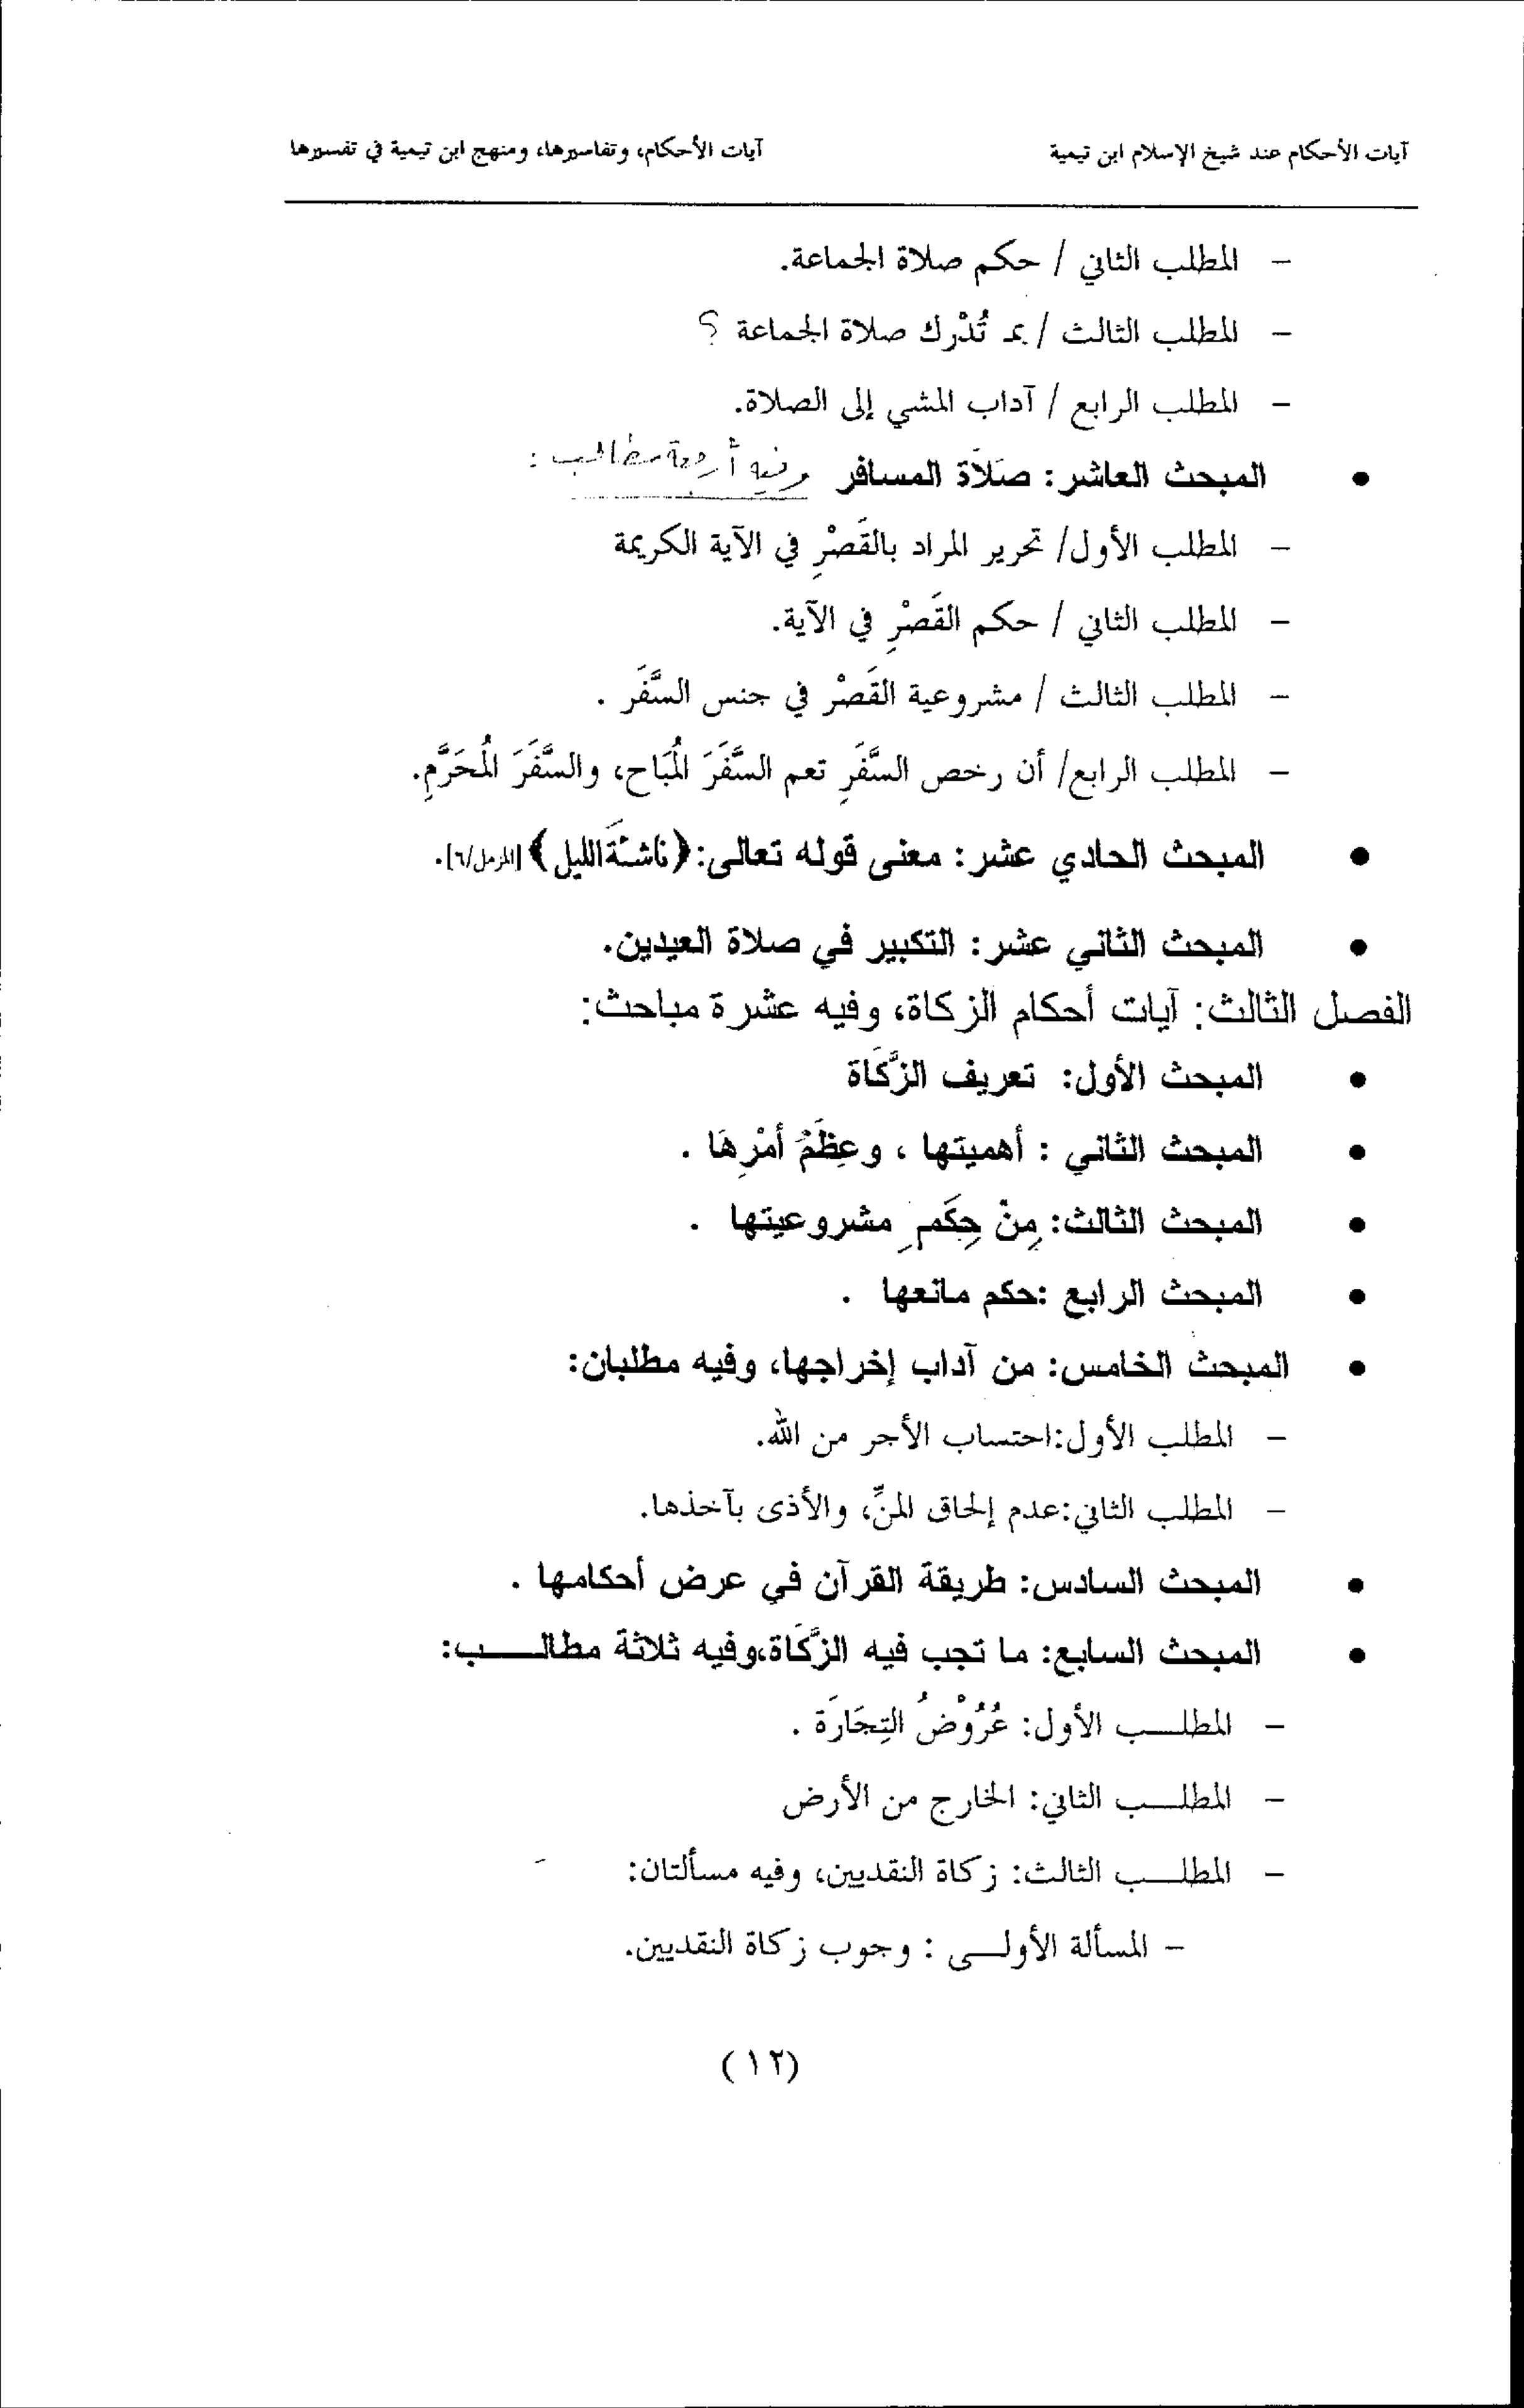 آيات الأحكام عند شيخ الإسلام ابن تيمية آيات الأحكام، وتفاسيرها، ومنهج ابن تيمية في تفسيرها
– المطلب الثاني / حكم صلاة الجماعة.
– المطلب الثالث / بم تُدْرك صلاة الجماعة ؟
– المطلب الرابع / آداب المشي إلى الصلاة.
• المبحث العاشر: صَلاَة المسافر وفيه أربعة مطالب :
– المطلب الأول/ تحرير المراد بالقَصْرِ في الآية الكريمة
– المطلب الثاني / حكم القَصْرِ في الآية.
– المطلب الثالث / مشروعية القَصْر في جنس السَّفَر .
– المطلب الرابع/ أن رخص السَّفَرِ تعم السَّفَرَ المُبَاح، والسَّفَرَ المُحَرَّمِ.
• المبحث الحادي عشر: معنى قوله تعالى:﴿ناشئَةَ الليل﴾[المزمل/٦].
• المبحث الثاني عشر: التكبير في صلاة العيدين.
الفصل الثالث: آيات أحكام الزكاة، وفيه عشرة مباحث:
• المبحث الأول: تعريف الزَّكَاة
• المبحث الثاني : أهميتها ، وعِظَمُ أمْرِهَا .
• المبحث الثالث: مِنْ حِكَمِ مشروعيتها .
• المبحث الرابع :حكم مانعها .
• المبحث الخامس: من آداب إخراجها، وفيه مطلبان:
– المطلب الأول:احتساب الأجر من الله.
– المطلب الثاني:عدم إلحاق المنِّ، والأذى بآخذها.
• المبحث السادس: طريقة القرآن في عرض أحكامها .
• المبحث السابع: ما تجب فيه الزَّكَاة،وفيه ثلاثة مطالــب:
– المطلــب الأول: عُرُوْضُ التِجَارَة .
– المطلــب الثاني: الخارج من الأرض
– المطلــب الثالث: زكاة النقديين، وفيه مسألتان:
– المسألة الأولــى : وجوب زكاة النقديين.
(١٢)